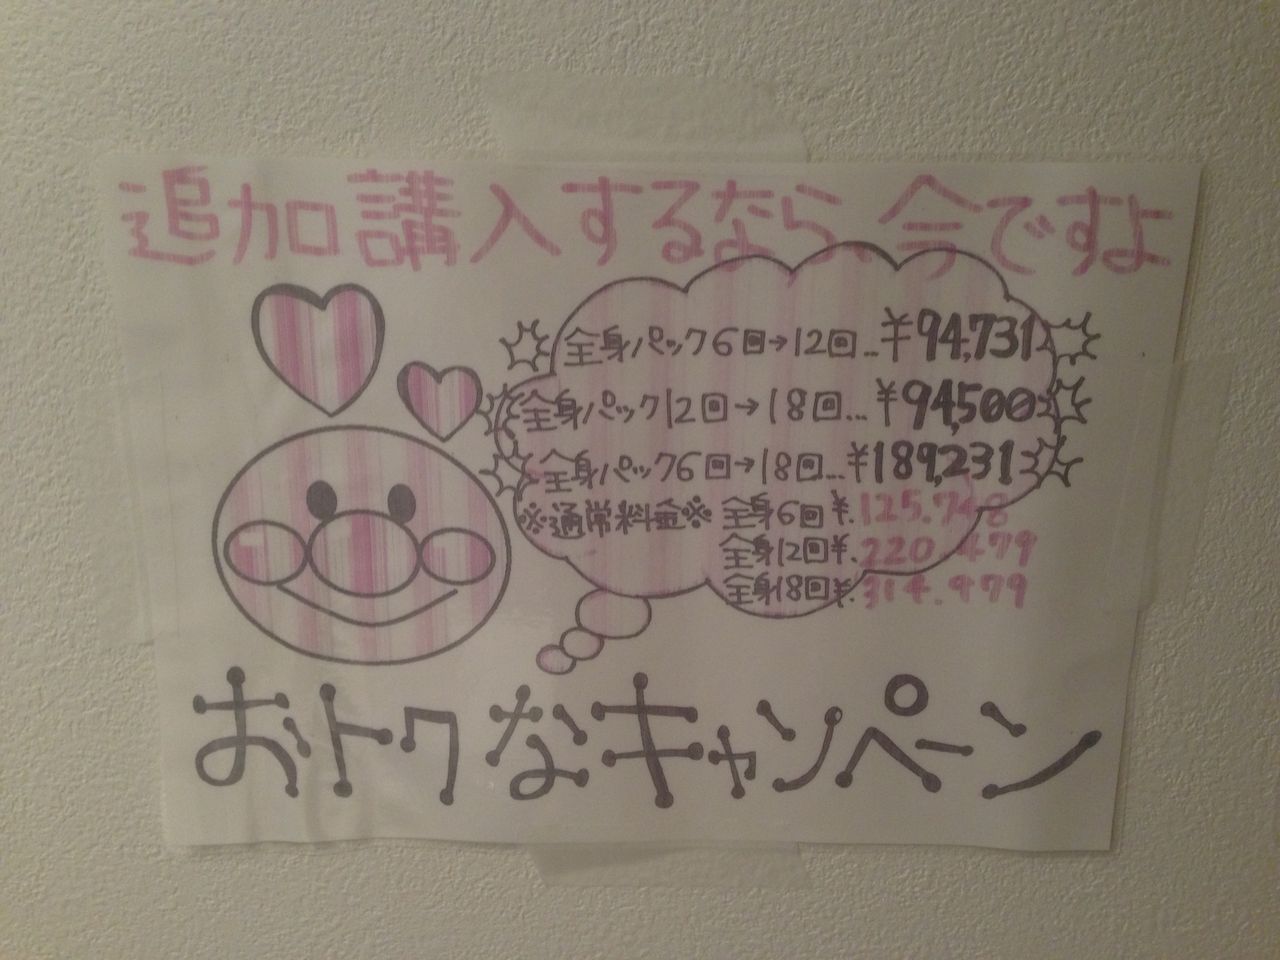 追加購入するなら、今ですよ
全身パック6回→12回...¥94,731
全身パック12回→18回...¥94,500
全身パック6回→18回...¥189,231
※通常料金※ 全身6回¥.125.748
全身12回¥.220.479
全身18回¥.314.979
おトクなキャンペーン